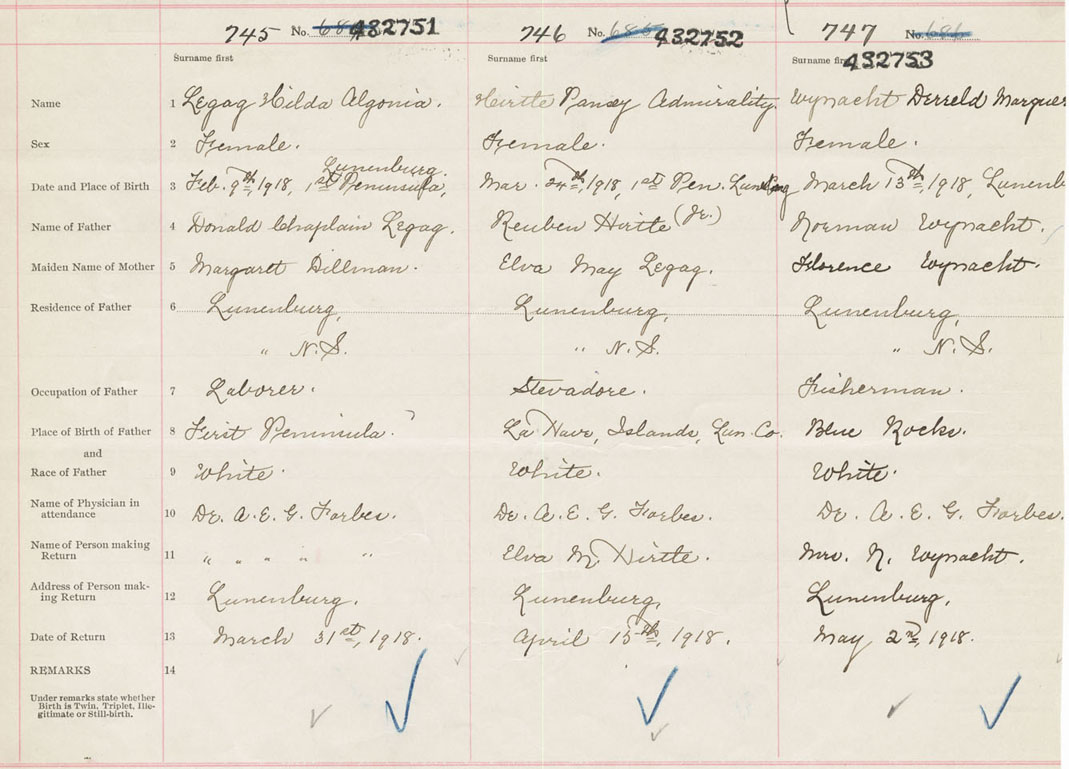 745 No. 432751 746 No. 432752 747 No.
Surname first Surname first Surname first 432753
Name 1 Legag Hilda Algonia. Hirtle Pansy Admirality. Wynacht Derreld
Sex 2 Female. Female. Female.
Lunenburg.
Date and Place of Birth 3 Feb. 9th, 1918, 1st Peninsula, Mar. 24th, 1918, 1st Pen. March 13th, 1918, Lunenb
Name of Father 4 Donald Chaplain Legag. Reuben Hirtle (Jr.) Norman Wynacht.
Maiden Name of Mother 5 Margaret Dillman. Elva May Legag. Florence Wynacht.
Residence of Father 6 Lunenburg, Lunenburg, Lunenburg,
" N.S. " N.S. " N.S.
Occupation of Father 7 Laborer. Stevadore. Fisherman.
Place of Birth of Father 8 First Peninsula. ? La Have, Islands, Lun. Co. Blue Rocks.
and
Race of Father 9 White. White. White.
Name of Physician in
attendance 10 Dr. A. E. G. Forbes. Dr. A. E. G. Forbes. Dr. A. E. G. Forbes.
Name of Person making
Return 11 " " " " " Elva M. Hirtle. Mrs. N. Wynacht.
Address of Person mak-
ing Return 12 Lunenburg. Lunenburg, Lunenburg,
Date of Return 13 March 31st, 1918. April 15th, 1918. May 2nd, 1918.
REMARKS 14
Under remarks state whether
Birth is Twin, Triplet, Ille-
gitimate or Still-birth.